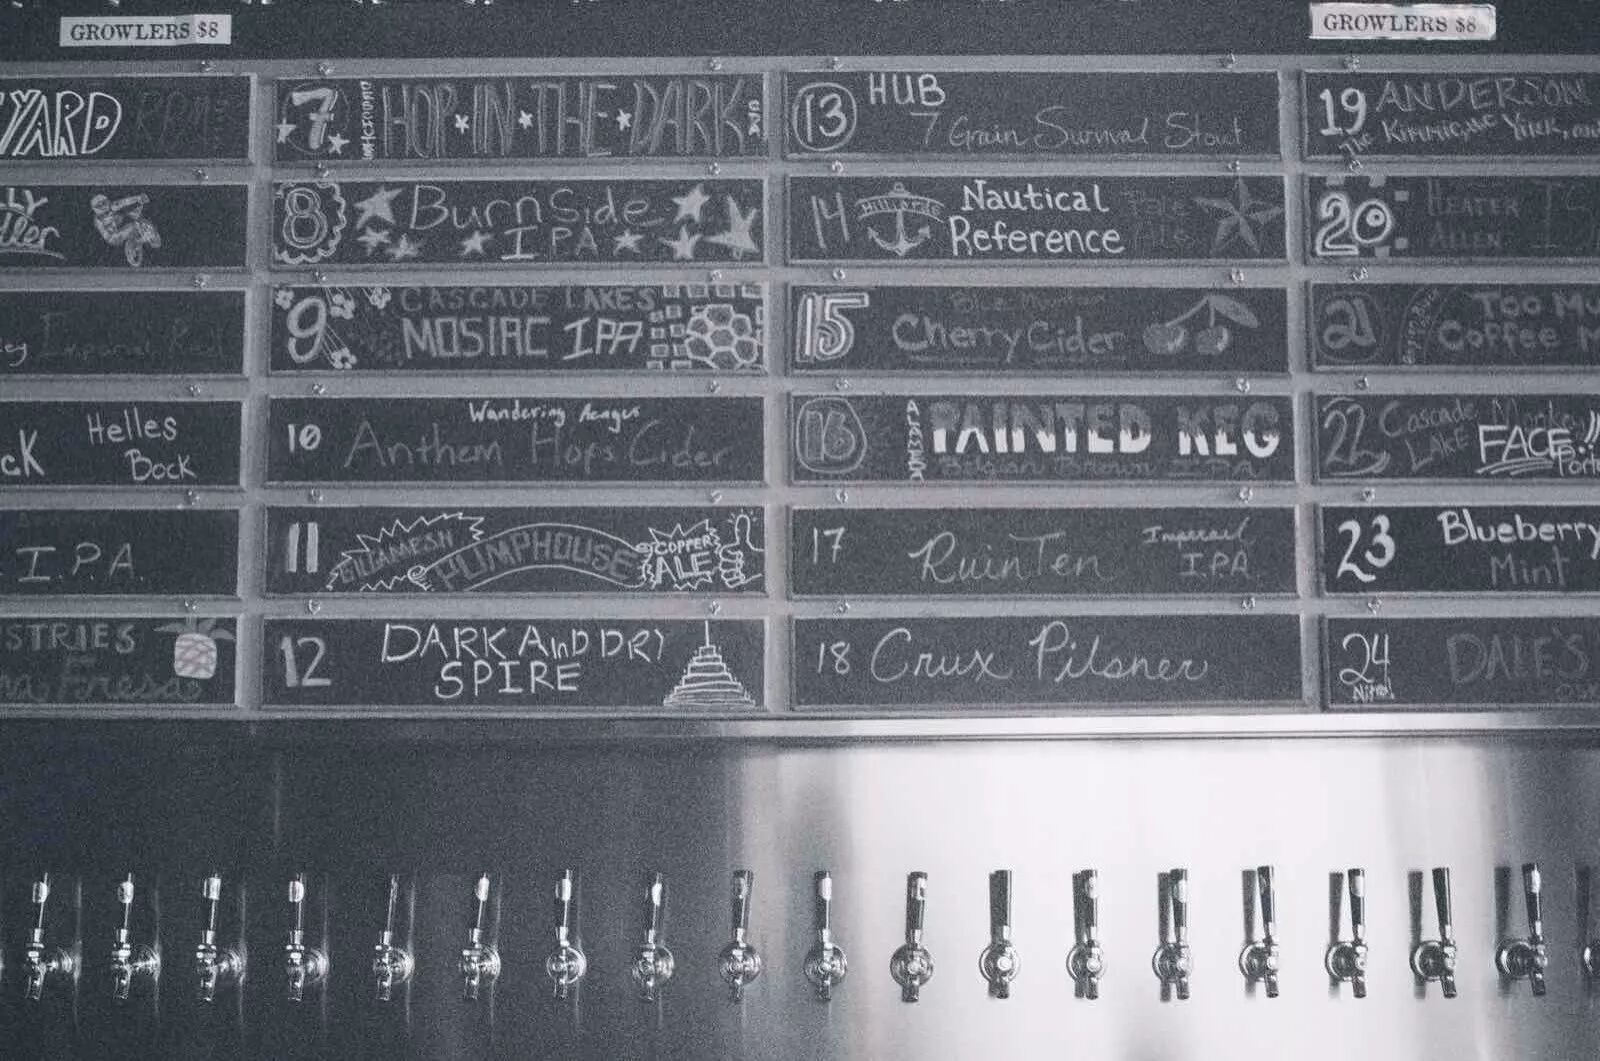 GROWLERS $8
GROWLERS $8
YARD
I.P.A.
Helles
Bock
STRIES
Fresca
7
HOP IN THE DARK
8
BurnSide
IPA
9
CASCADE LAKES
MOSIAC IPA
10
Wandering Aengus
Anthem Hops Cider
11
GILGAMESH
PUMPHOUSE
COPPER
ALE
12
DARK AND DRY
SPIRE
13
HUB
7 Grain Survival Stout
14
Nautical
Reference
Pale
Ale
15
Cherry Cider
16
PAINTED KEG
Belgian Brown IPA
17
RuinTen
Imperial
I.P.A.
18 Crux Pilsner
19
ANDERSON
The Kimmie, the Yink, and
20
HEATER
ALLEN
21
Too Mu
Coffee M
22
Cascade
LAKE
Monkey
FACE!!
Porte
23
Blueberry
Mint
24
Nitro!
DALE'S